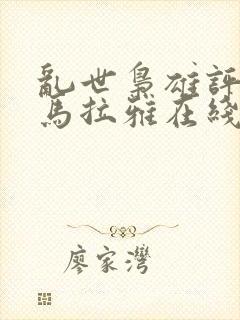 亂世梟雄評
馬拉雅在綫
廖家灣